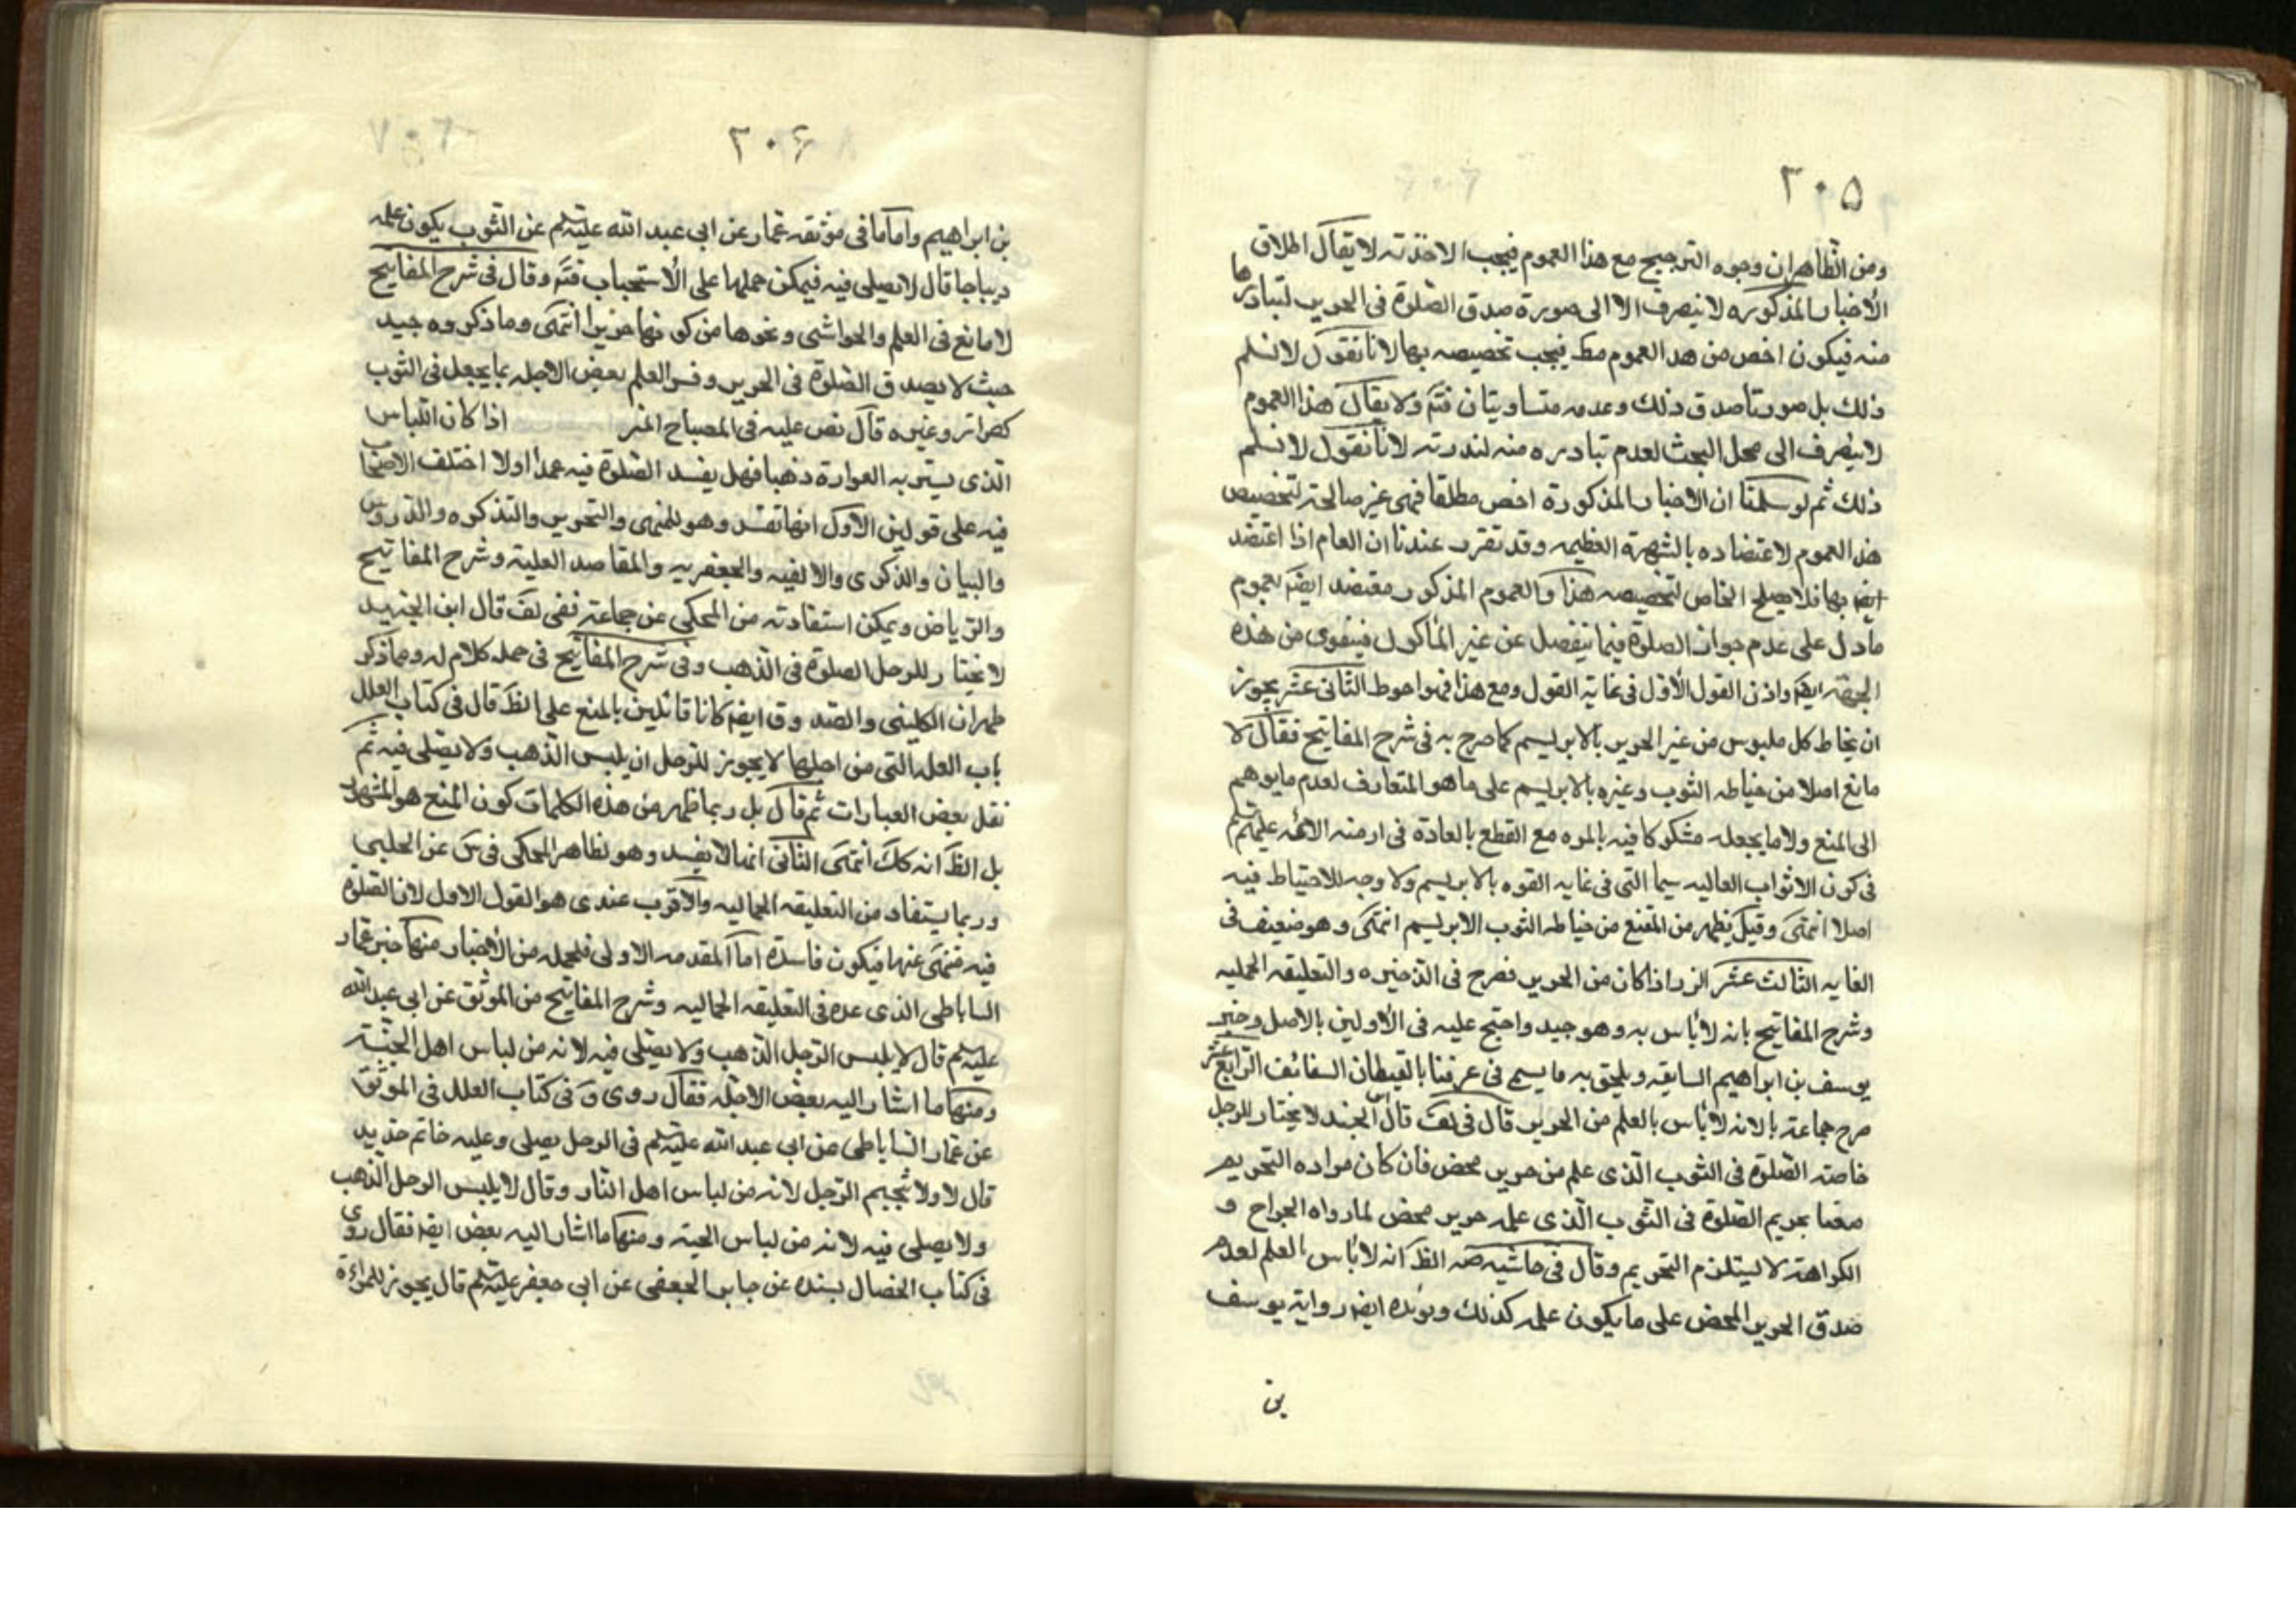 ٢٠٥
ومن الظاهر ان وجوه الترجيح مع هذا العموم فيجب الاخذ به لا يقال اطلاق
الأخبار المذكوره لا ينصرف الا الى صورة صدق الصلوة فى الحرير لتبادرها
منه فيكون اخص من هذ العموم مط فيجب تخصيصه بها لانا نقول لا نسلم
ذلك بل صورتا صدق ذلك وعدمه متساويتان فتم ولا يقال هذا العموم
لا ينصرف الى محل البحث لعدم تبادره منه لندرته لانا نقول لا نسلم
ذلك ثم لو سلمنا ان الاخبار المذكورة اخص مطلقا فهى غير صالحة لتخصيص
هذ العموم لاعتضاده بالشهرة العظيمه وقد تقرب عندنا ان العام اذا اعتضد
ايض بها فلا يصلح الخاص لتخصيصه هذا والعموم المذكور معتضد ايض بعموم
ما دل على عدم جواز الصلوة فيما ينفصل عن غير المأكول فيتقوى من هذه
الجهة ايض واذن القول الأول فى غاية القول ومع هذا فهو احوط الثانى عشر يجوز
ان يخاط كل ملبوس من غير الحرير بالابريسم كما صرح به فى شرح المفاتيح فقال لا
مانع اصلا من خياطه الثوب وغيره بالابريسم على ما هو المتعارف لعدم ما يوهم
الى المنع ولا ما يجعله مشكوكا فيه بالمره مع القطع بالعادة فى ازمنه الائمه عليهم
فى كون الاثواب العاليه سيما التى فى غايه القوه بالابريسم ولا وجه للاحتياط فيه
اصلا انتهى وقيل يظهر من المقنع من خياطه الثوب الابريسم انتهى وهو ضعيف فى
الغايه الثالث عشر الزر اذا كان من الحرير فصرح فى الذخيره والتعليقه الجماليه
وشرح المفاتيح بانه لا بأس به وهو جيد واحتج عليه فى الأولين بالاصل وخبر
يوسف بن ابراهيم السابقه ويلحق به ما يسمى فى عرفنا بالقيطان السفائف الرابع عشر
صرح جماعة بالانه لا بأس بالعلم من الحرير قال فى لف قال ابن الجنيد لا يختار للرجل
خاصة الصلوة فى الثوب الذى علم من حرير محض فان كان مراده التحريم
صعنا بحريم الصلوة فى الثوب الذى علمه حرير محض لما رواه الجراح و
الكراهة لا يستلزم التحريم وقال فى حاشيه ضه الظ انه لا بأس بالعلم لعدم
صدق الحرير المحض على ما يكون علمه كذلك ويؤيده ايض رواية يوسف
بن
٢٠۶
بن ابراهيم واما ما فى موثقه عمار عن ابى عبد الله عليه السلم عن الثوب يكون علمه
ديباجا قال لا يصلى فيه فيمكن حملها على الأستحباب فتم وقال فى شرح المفاتيح
لا مانع فى العلم والحواشى ونحوها من كونها حريرا انتهى وما ذكروه جيد
حيث لا يصدق الصلوة فى الحرير وفسر العلم بعض الاجله بما يجعل فى الثوب
كطراز وغيره قال نص عليه فى المصباح المنير اذا كان اللباس
الذى يستر به العوارة ذهبا فهل يفسد الصلوة فيه عمدا اولا اختلف الاصحاب
فيه على قولين الأول انها تفسد وهو للمنتهى والتحرير والتذكره والدروس
والبيان والذكرى والالفيه والجعفريه والمقاصد العلية وشرح المفاتيح
والرياض ويمكن استفادته من المحكى عن جماعة ففى لف قال ابن الجنيد
لا يختار للرجل الصلوة فى الذهب وفى شرح المفاتيح فى جمله كلام له ومما ذكر
ظهر ان الكلينى والصدوق ايض كانا قائلين بالمنع على الظ قال فى كتاب العلل
باب العلة التى من اجلها لا يجوز للرجل ان يلبس الذهب ولا يصلى فيه ثم
نقل بعض العبارات ثم قال بل ربما ظهر من هذه الكلمات كون المنع هو المشهور
بل الظ انه كك انتهى الثانى انها لا يفسد وهو لظاهر المحكى فى س عن الحلبى
وربما يستفاد من التعليقه الجماليه والأقرب عندى هو القول الاول لان الصلوة
فيه منهى عنها فيكون فاسدة اما المقدمه الاولى فلجمله من الأخبار منها خبر عمار
الساباطى الذى عده فى التعليقه الجماليه وشرح المفاتيح من الموثق عن ابى عبد الله
عليه السلم قال لا يلبس الرجل الذهب ولا يصلى فيه لانه من لباس اهل الجنة
ومنها ما اشار اليه بعض الاجله فقال روى ق فى كتاب العلل فى الموثق
عن عمار الساباطى عن ابى عبد الله عليه السلم فى الرجل يصلى وعليه خاتم حديد
قال لا ولا يختم الرجل لانه من لباس اهل النار وقال لا يلبس الرجل الذهب
ولا يصلى فيه لانه من لباس الجنة ومنها ما اشار اليه بعض ايض فقال روى
فى كتاب الخصال بسنده عن جابر الجعفى عن ابى جعفر عليه السلم قال يجوز للمراءة